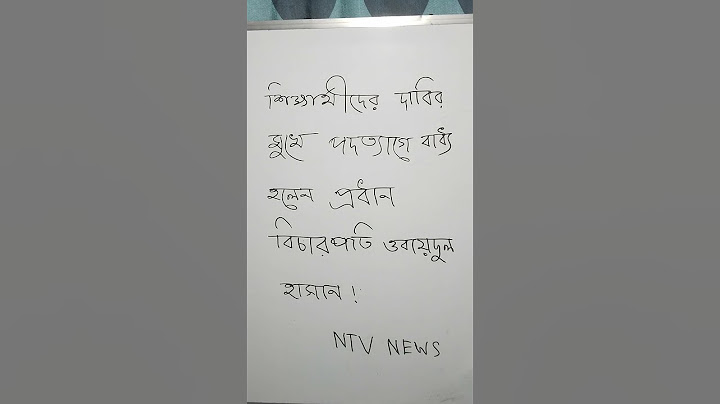 শিক্ষার্থীদের দাবির
মুখে পদত্যাগে বাধ্য
হলেন প্রধান
বিচারপতি ওবায়দুল
হাসান!
NTV NEWS